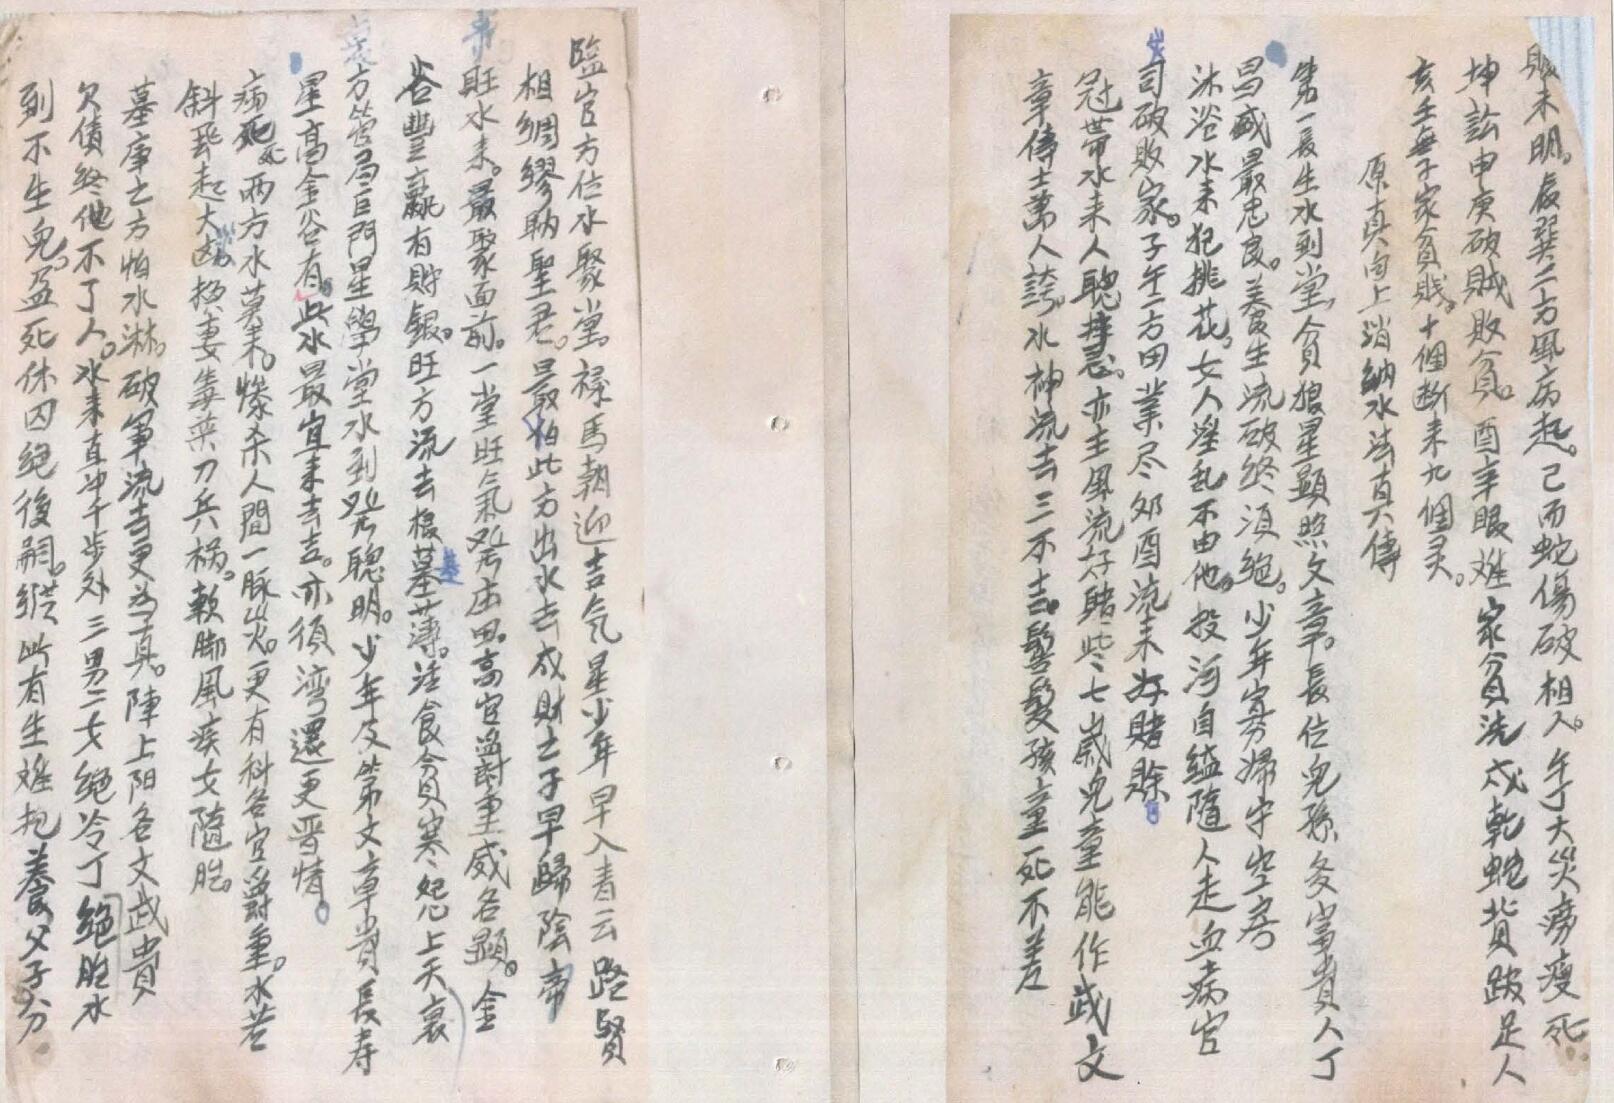 敗未明。辰巽二方風病起。己而蛇傷破相人。午丁大災癆瘦死
坤訟申庚破賊敗貧。酉辛眼难家貧洗戌乾蛇貨跛足人
亥壬無子家貧賎。十個断来九個灵。
原真向上消納水法真傳
第一長生水到堂，貪狼星顕照文章。長位兒孫多富貴人丁
昌盛最忠良。養生流破終須絶。少年寡婦守空房
沐浴水来犯桃花，女人淫乱不由他。投河自缢隨人走血病官
司破敗家。子午二方田業尽卯酉流来好賭賒
冠帯水来人聰。亦主風流好賭些七嵗兒童能作武文
章傅士萬人誇，水神流去三不吉。髫髮孩童死不差
臨官方位水聚堂。禄馬朝迎吉气星少年早入青云路賢
相綢繆聃聖君。最怕此方出水去成財士子早歸陰帝
旺水来。最聚面前。一堂旺氣発庄田。高官爵重威名顕。金
谷豐饒有財銀。旺方流去根基薄。汪食貧寒怨上天衰
方管局巨門星學堂水到発聰明。少年及第文章貴長寿
星高金谷有。此水最宜来去吉。亦須湾還更晋情。
病死両方水莫来。慘杀人間一脉災。更有科名官爵重。水若
斜飛起大凶損妻毒藥刀兵祸。軟脚風疾女隨胎。
墓庫之方怕水淋。破軍流去更為真。陣上阳名文武貴
欠債终他不了人。水来直冲千步外三男二女絶冷丁絶胎水
到不生兒。孟死休囚絕後嗣。縱此有生难把養父子分